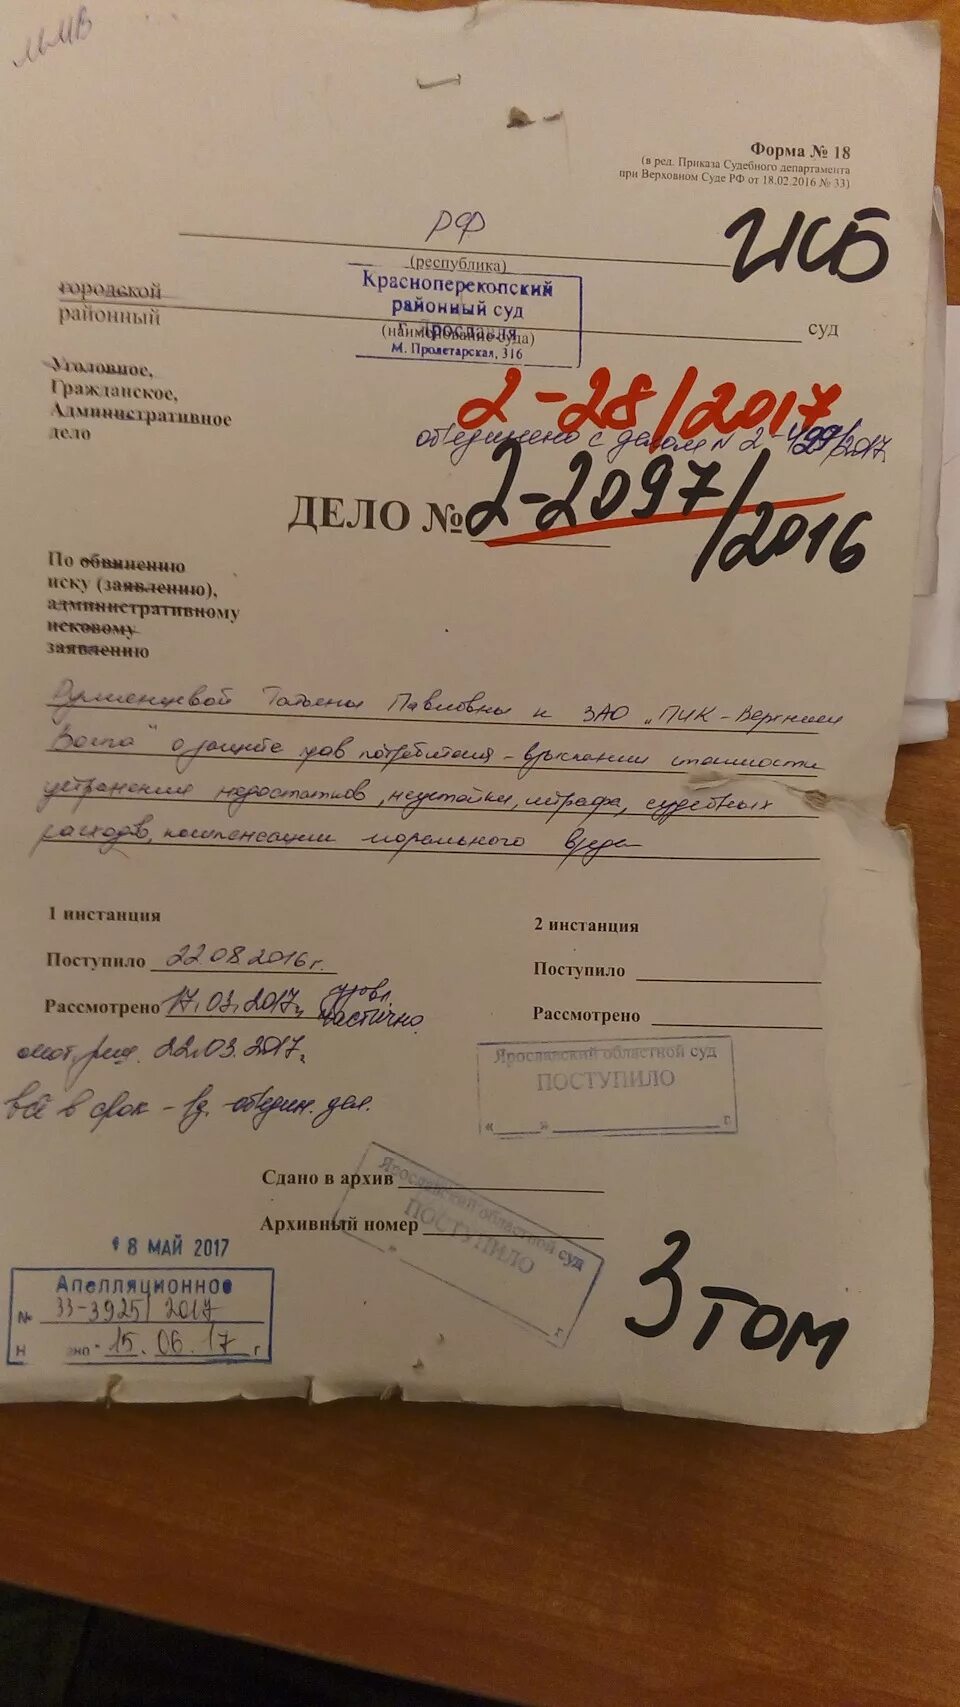 ЛММВ
Форма № 18
(в ред. Приказа Судебного департамента
при Верховном Суде РФ от 18.02.2016 № 33)
РФ
ИСБ
(республика)
Красноперекопский
районный суд
г. Ярославля
М. Пролетарская, 316
городской
районный
(наименование суда)
суд
Уголовное,
Гражданское,
Административное
дело
2-28/2017
объединено с делом № 2-499/2017
ДЕЛО № 2-2097/2016
По обвинению
иску (заявлению),
административному
исковому
заявлению
Татьяны Павловны к ЗАО „ПИК-Верхняя
Волга" о защите прав потребителя - взыскании стоимости
устранения недостатков, неустойки, штрафа, судебных
расходов, компенсации морального вреда
1 инстанция
2 инстанция
Поступило 22.08.2016 г.
Поступило
Рассмотрено 17.03.2017г. удовл.
частично
Рассмотрено
22.03.2017г.
всё в срок - объедин. дел.
Ярославский областной суд
ПОСТУПИЛО
« » г
Сдано в архив
Архивный номер
Ярославский областной суд
ПОСТУПИЛО
» г
18 МАЙ 2017
Апелляционное
№ 33-3925/2017
Н ено 15.06.17 г
3 том